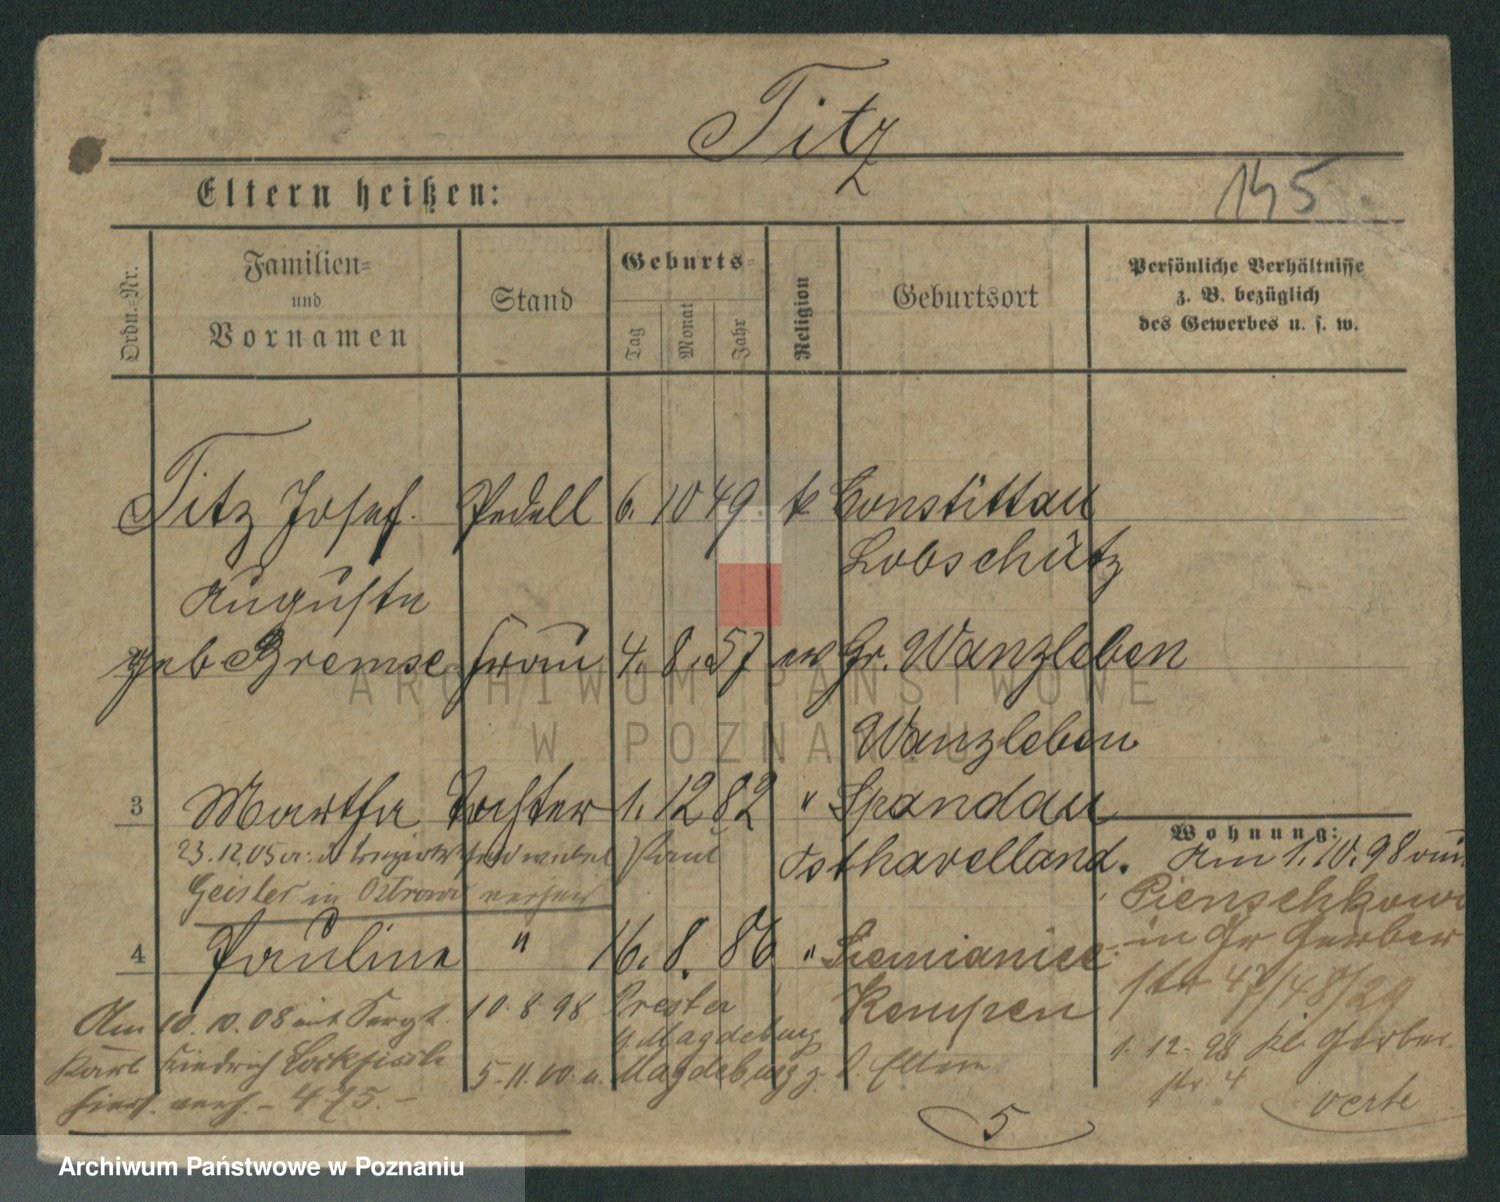 Titz
Eltern heißen:
145
Ordn.-Nr.
Familien-
und
Vornamen
Stand
Geburts-
Tag
Monat
Jahr
Religion
Geburtsort
Persönliche Verhältnisse
z. B. bezüglich
des Gewerbes u. s. w.
Titz Josef. Pedell 6. 10 49 k Constittau
Lobschütz
Auguste
geb Bremse Frau 4. 8. 57 ev Gr. Wanzleben
Wanzleben
3 Martha Tochter 1. 12 82 " Spandau
Osthavelland.
23.12.05 a: d. Paul
Geisler in Ostrowo
4 Pauline " 16. 8. 86 " Siemianice
Kempen
Am 10. 10. 08 mit Sergt.
Karl Friedrich
hier. verh. - 475. -
10. 8 98 Prester
b. Magdeburg
5. 11. 00 u. Magdeburg z. d. Eltern
Wohnung:
Am 1. 10. 98 von
Pienschkowo
in Gr Gerber
str 47/48/29
1. 12. 98 kl. Gerber
str. 4
verte
5
ARCHIWUM PAŃSTWOWE
W POZNANIU
Archiwum Państwowe w Poznaniu